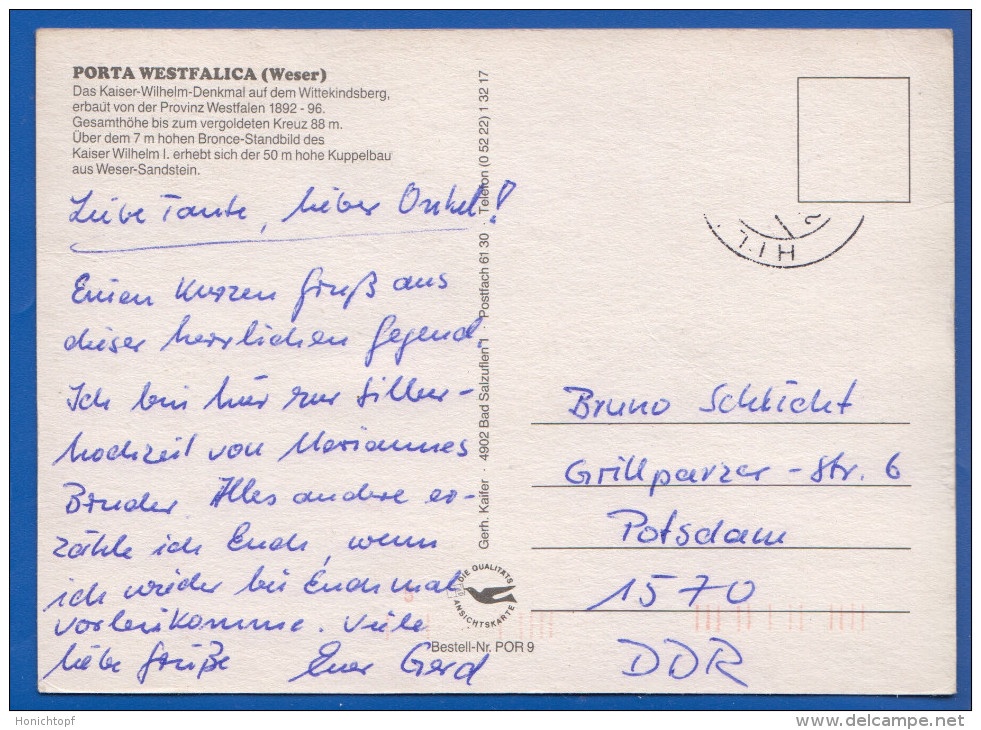 PORTA WESTFALICA (Weser)
Das Kaiser-Wilhelm-Denkmal auf dem Wittekindsberg,
erbaut von der Provinz Westfalen 1892 - 96.
Gesamthöhe bis zum vergoldeten Kreuz 88 m.
Über dem 7 m hohen Bronce-Standbild des
Kaiser Wilhelm I. erhebt sich der 50 m hohe Kuppelbau
aus Weser-Sandstein.
Liebe Tante, lieber Onkel!
Einen kurzen Gruß aus
dieser herrlichen Gegend.
Ich bin hier zur Silber-
hochzeit von Mariannes
Bruder. Alles andere er-
zähle ich Euch, wenn
ich wieder bei Euch mal
vorbeikomme. Viele
liebe Grüße Euer Gerd
Gerh. Kaifer · 4902 Bad Salzuflen 1 · Postfach 61 30 · Telefon (0 52 22) 1 32 17
DIE QUALITÄTS
ANSICHTSKARTE
Bestell-Nr. POR 9
Bruno Schlicht
Grillparzer-Str. 6
Potsdam
1570
DDR
Honichtopf
www.delcampe.net